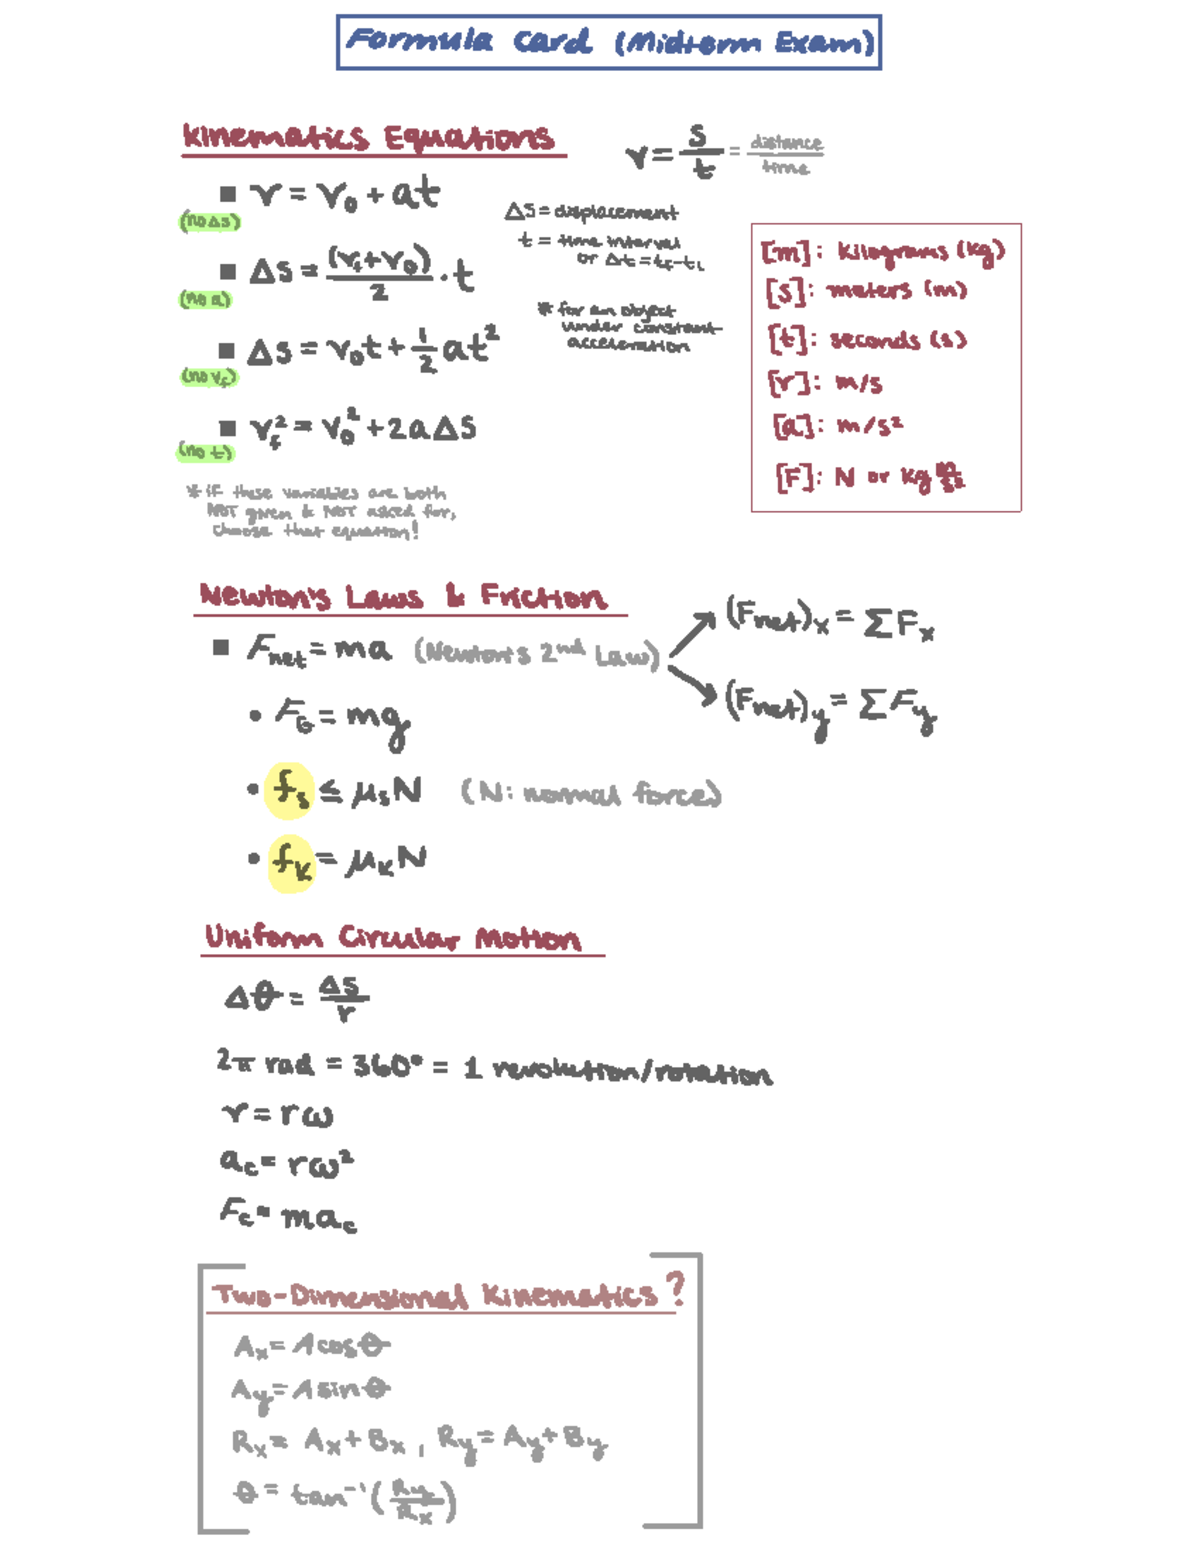 Formula Card (Midterm Exam)
Kinematics Equations
v = s/t = distance/time
■ v = v₀ + at
(no Δs)
Δs = displacement
t = time interval
or Δt = t_f - t_i
■ Δs = (v_f + v₀)/2 · t
(no a)
* for an object
under constant
acceleration
■ Δs = v₀t + 1/2 at²
(no v_f)
■ v_f² = v₀² + 2aΔs
(no t)
* if these variables are both
NOT given & NOT asked for,
choose that equation!
[m]: kilograms (kg)
[s]: meters (m)
[t]: seconds (s)
[v]: m/s
[a]: m/s²
[F]: N or kg m/s²
Newton's Laws & Friction
■ F_net = ma (Newton's 2nd Law)
(F_net)_x = ΣF_x
(F_net)_y = ΣF_y
• F_G = mg
• f_s ≤ μ_s N (N: normal force)
• f_k = μ_k N
Uniform Circular Motion
Δθ = Δs/r
2π rad = 360° = 1 revolution/rotation
v = rω
a_c = rω²
F_c = ma_c
Two-Dimensional Kinematics?
A_x = A cos θ
A_y = A sin θ
R_x = A_x + B_x , R_y = A_y + B_y
θ = tan⁻¹(R_y/R_x)